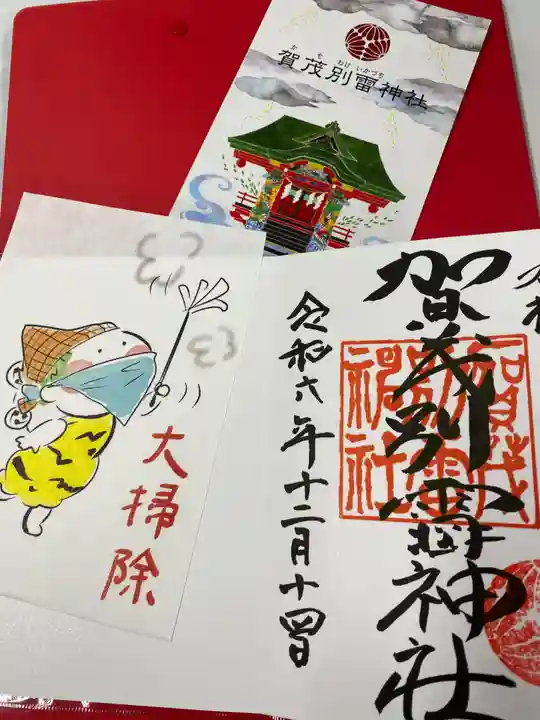 賀茂別雷神社
か も わけ いかづち
大掃除
賀茂別雷神社
賀茂別雷神社
令和六年十二月十四日